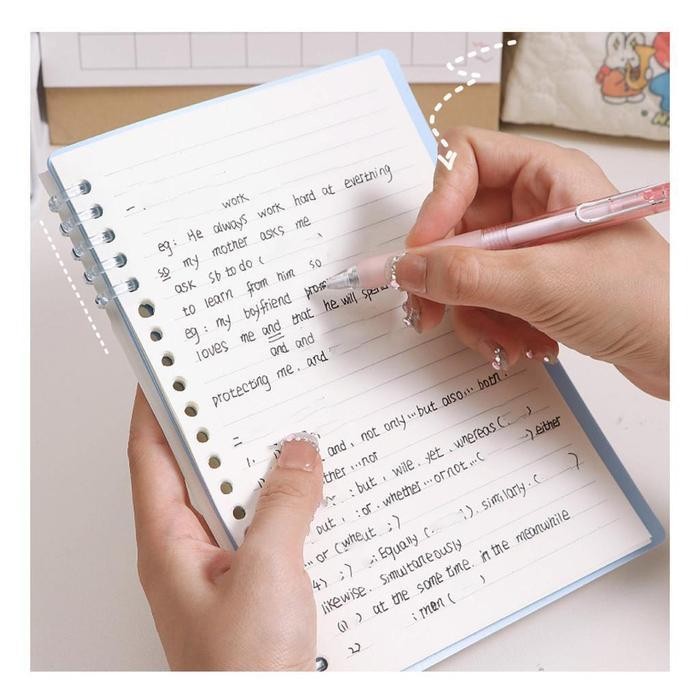 一. work
eg: He always work hard at everthing
so my mother asks me
ask sb to do (
to learn from him so
eg: my boyfriend
loves me and that he will spend
and and
protecting me. and
二
1. and, not only...but also... both.
...nor
: but, wile. yet. whereas ( ) either
out, : or. whether...or not... (
...or (wheut :)
4) :) : Equally ( ), similarly. ( )
likewise. simultaneously
(1) at the same time. in the meanwhile
2) : men ( )